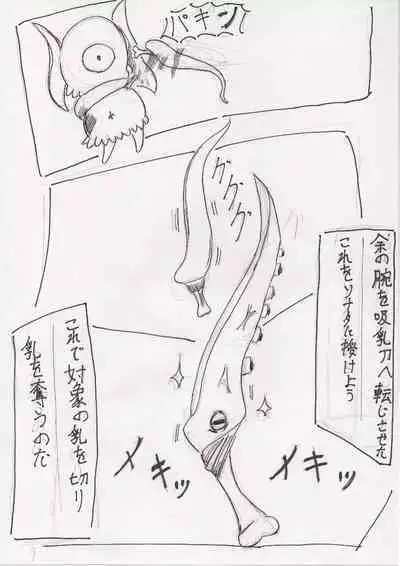 パキン
グググ
余の腕を吸乳刀へ転じさせた
これをソナタに授けよう
メキッ
メキッ
これで対象の乳を切り
乳を奪うのだ